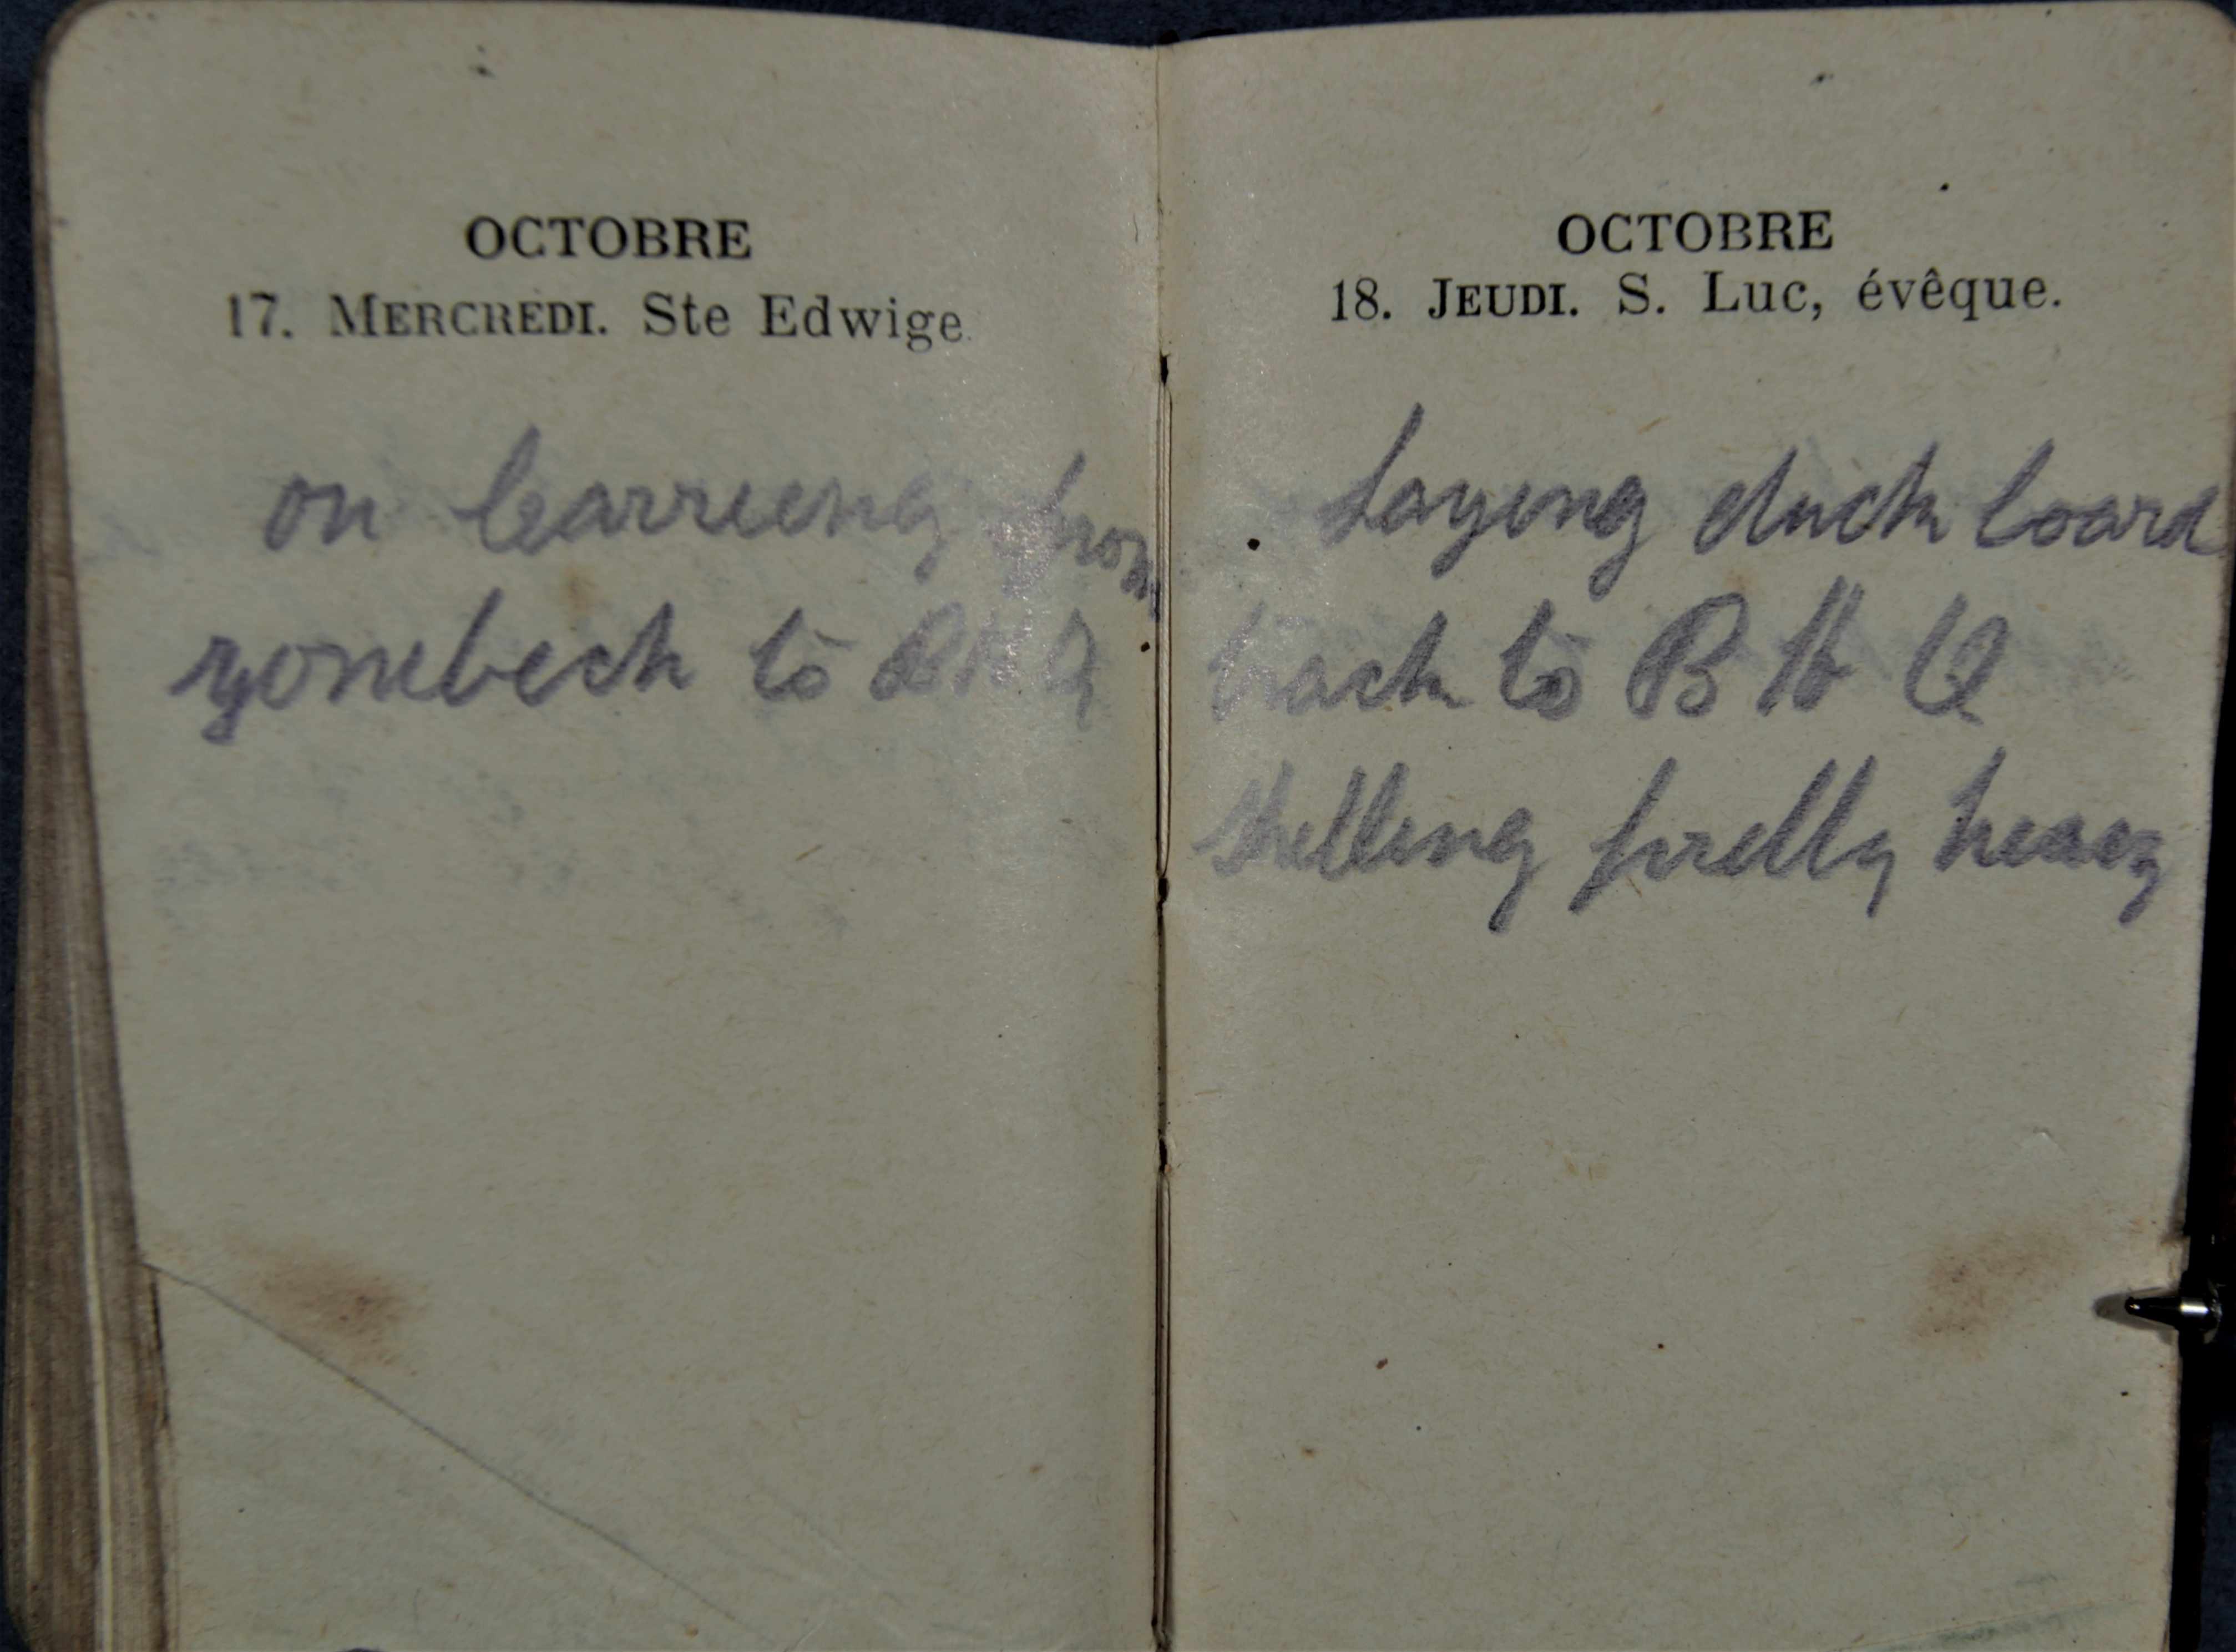 OCTOBRE
17. MERCREDI. Ste Edwige.
on carrieing from
zonebeck to B H Q
OCTOBRE
18. JEUDI. S. Luc, évêque.
Laying duck board
track to B H Q
Shelling pretty heavy